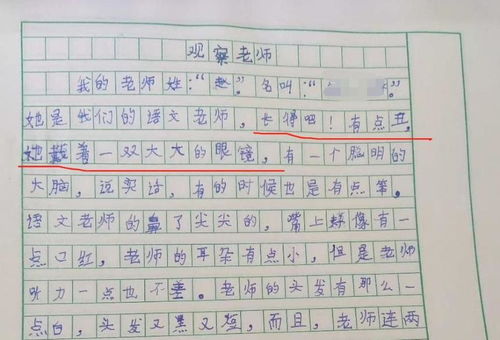 观察老师
我的老师姓:“赵”。名叫:“”
她是我们的语文老师,长得吧!有点丑,
她戴着一双大大的眼镜,有一个脑明的
大脑,说实话,有的时候也是有点笨。
语文老师的鼻了尖尖的,嘴上好像有一
点口红,老师的耳朵有点小,但是老师
听力一点也不差。老师的头发有那么一
点白,头发又黑又短,而且,老师连两